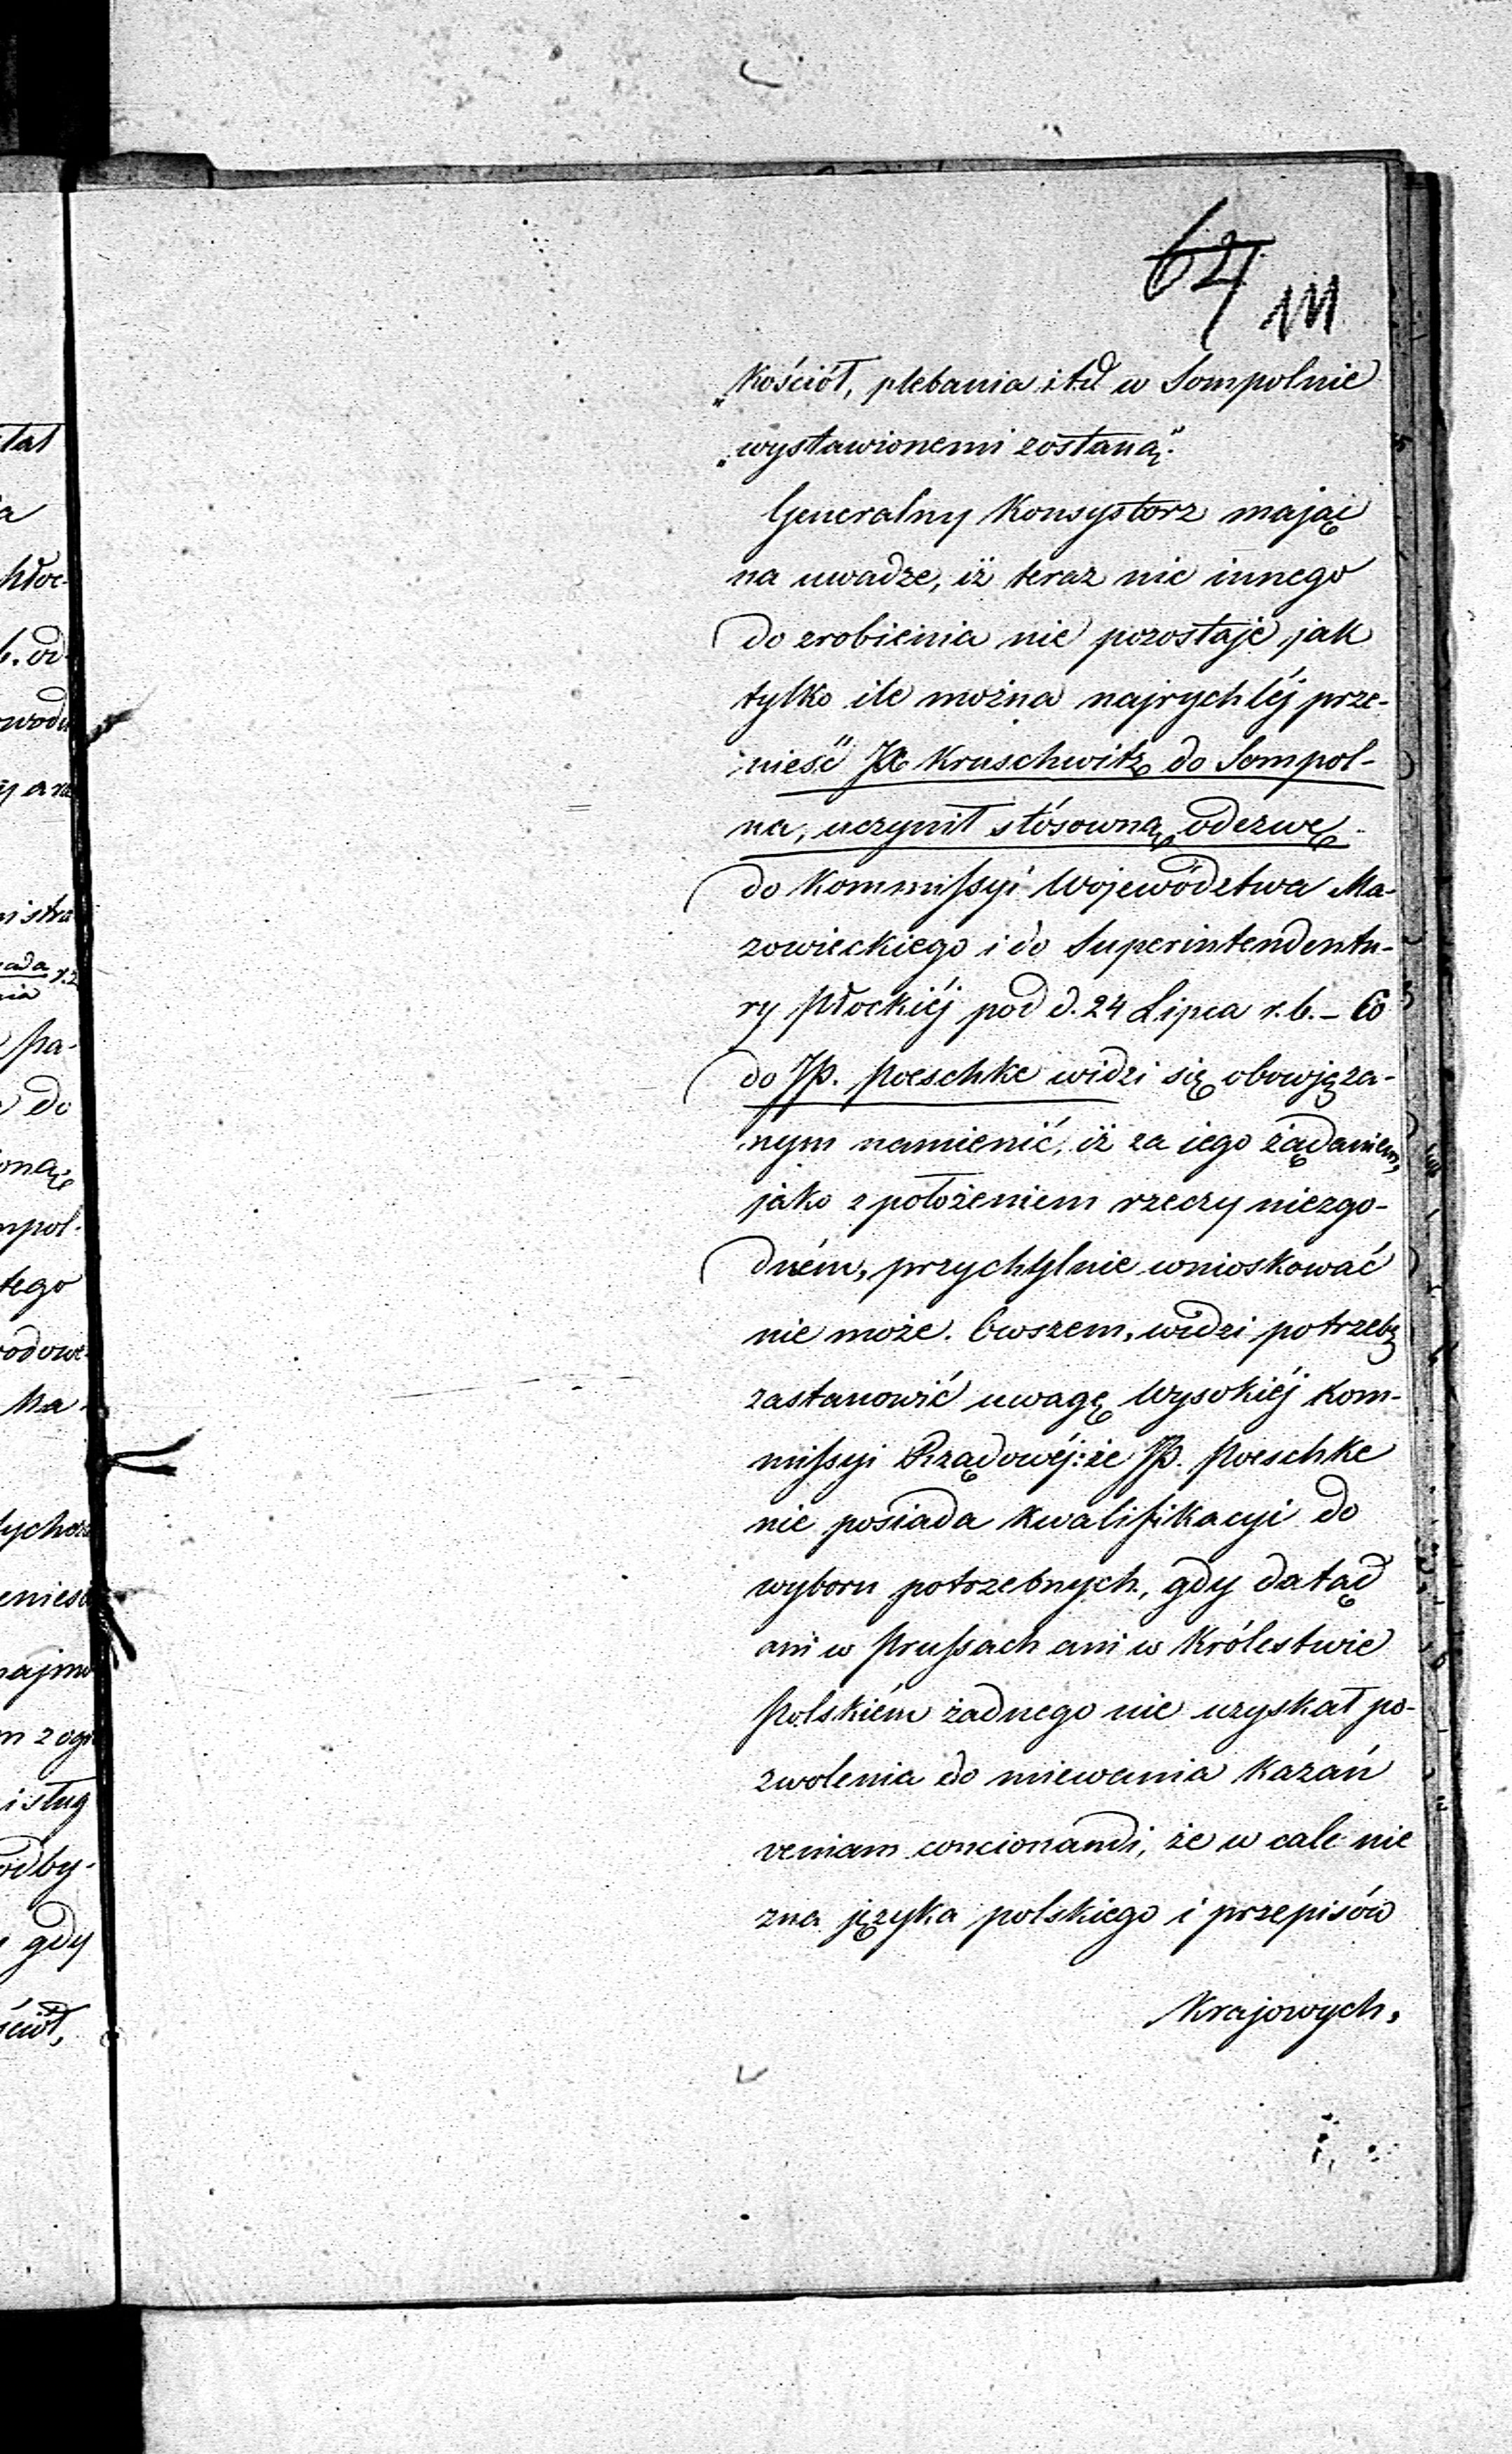 64 111
„Kościół, plebania itd w Sompolnie
„wystawionemi zostaną."
Generalny Konsystorz mając
na uwadze, iż teraz nic innego
do zrobienia nie pozostaje jak
tylko ile można najrychléj prze-
nieść JX Kruschwitz do Sompol-
na, uczynił stósowną odezwę
do Kommissyi Województwa Ma-
zowieckiego i do Superintendentu-
ry Płockiéj pod d. 24 Lipca r.b. – Co
do JP. Poeschke widzi się obowięza-
nym namienić, iż za jego żądaniem,
jako z położeniem rzeczy niezgo-
dném, przychylnie wnioskować
nie może. Owszem, widzi potrzebę
zastanowić uwagę Wysokiéj Kom-
missyi Rządowéj: że JP. Poeschke
nie posiada kwalifikacyi do
wyboru potrzebnych, gdy dotąd
ani w Prussach ani w Królestwie
Polskiém żadnego nie uzyskał po-
zwolenia do miewania kazań
veniam concionandi, że w cale nie
zna języka polskiego i przepisów
Krajowych,